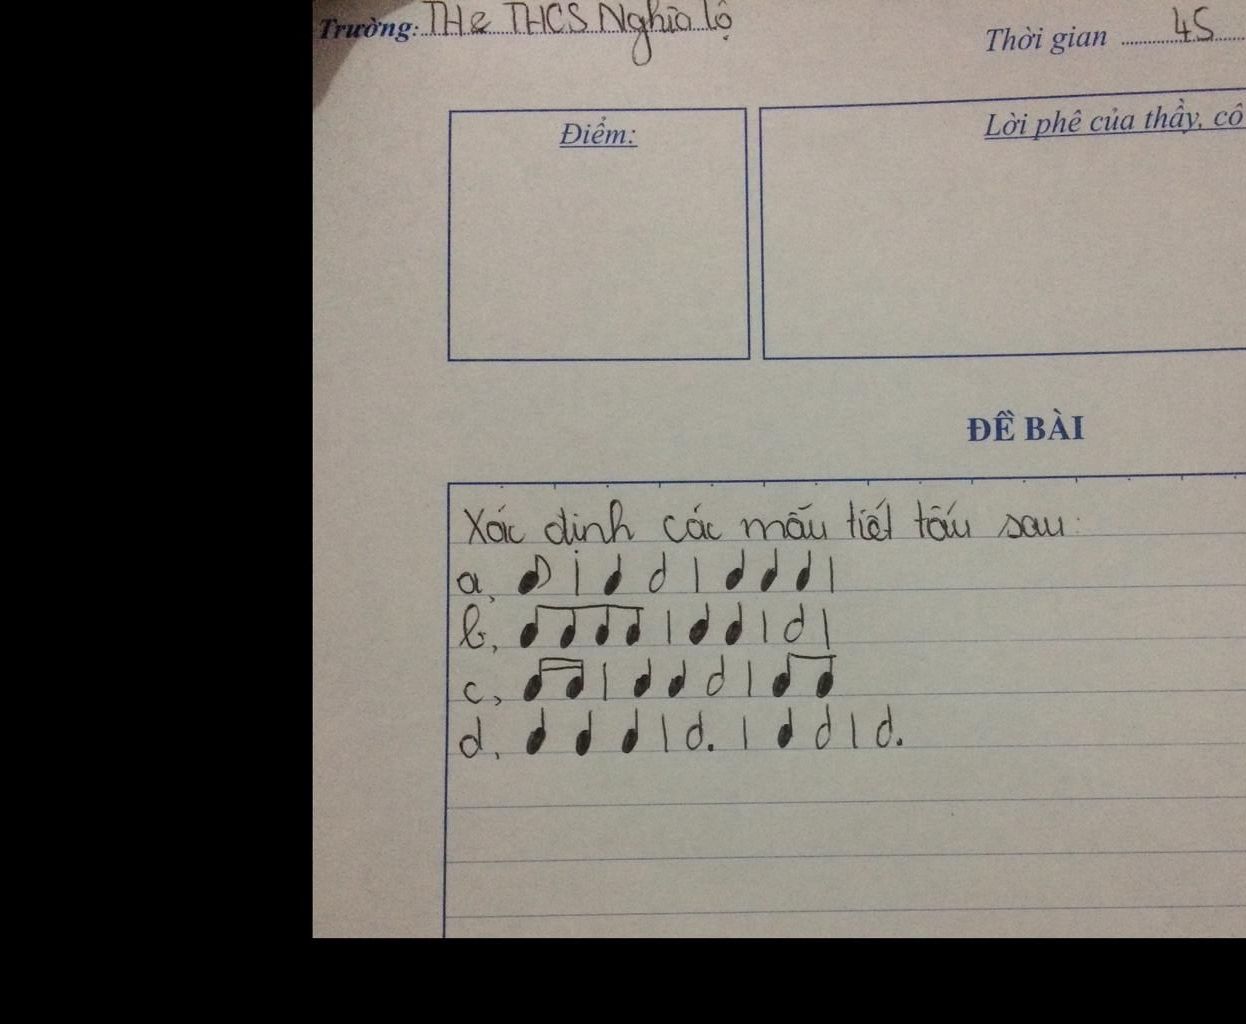 Trường: TH & THCS Nghĩa lộ
Thời gian 45
Điểm:
Lời phê của thầy, cô
ĐỀ BÀI
Xác định các mẫu tiết tấu sau:
a, ♪ | ♩ 𝅗𝅥 | ♩ ♩ ♩ |
b, ♫♫ | ♩ ♩ | 𝅗𝅥 |
c, ♬ | ♩ ♩ 𝅗𝅥 | ♫
d, ♩ ♩ ♩ | 𝅗𝅥. | ♩ 𝅗𝅥 | 𝅗𝅥.